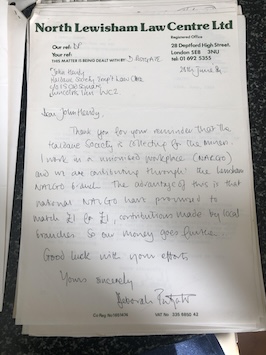 North Lewisham Law Centre Ltd
Registered Office
Our ref: DP
28 Deptford High Street,
Your ref:
London SE8 3NU
THIS MATTER IS BEING DEALT WITH BY D.
tel: 01 692 5355
John Hendy
Haldane Society
WC2
Dear John Hendy,
Thank you for your reminder that the
Haldane Society is collecting for the miners.
I work in a unionised workplace (NALGO)
and we are contributing through the Lewisham
NALGO branch. The advantage of this is that
national NALGO have promised to
match £1 for £1, contributions made by local
branches. So our money goes further.
Good luck with your efforts,
Yours sincerely
Deborah
Co Reg No
VAT No